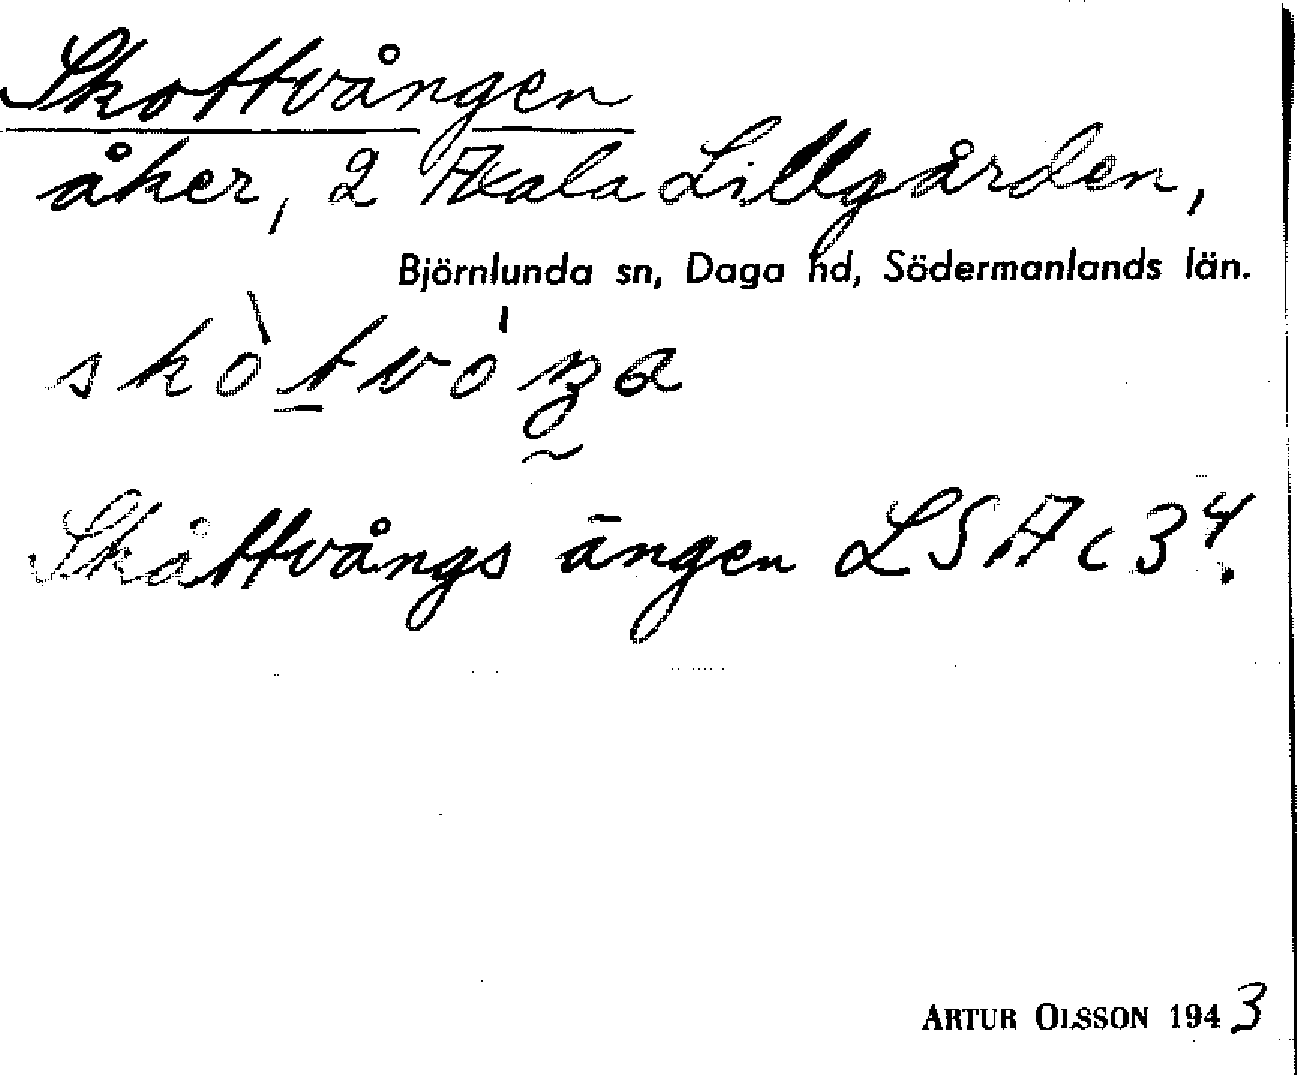 Skottvången
åker, 2 Axala Lillgården,
Björnlunda sn, Daga hd, Södermanlands län.
skòtvóŋa
Skåttvångs ängen LSA c 3⁴.
ARTUR OLSSON 1943